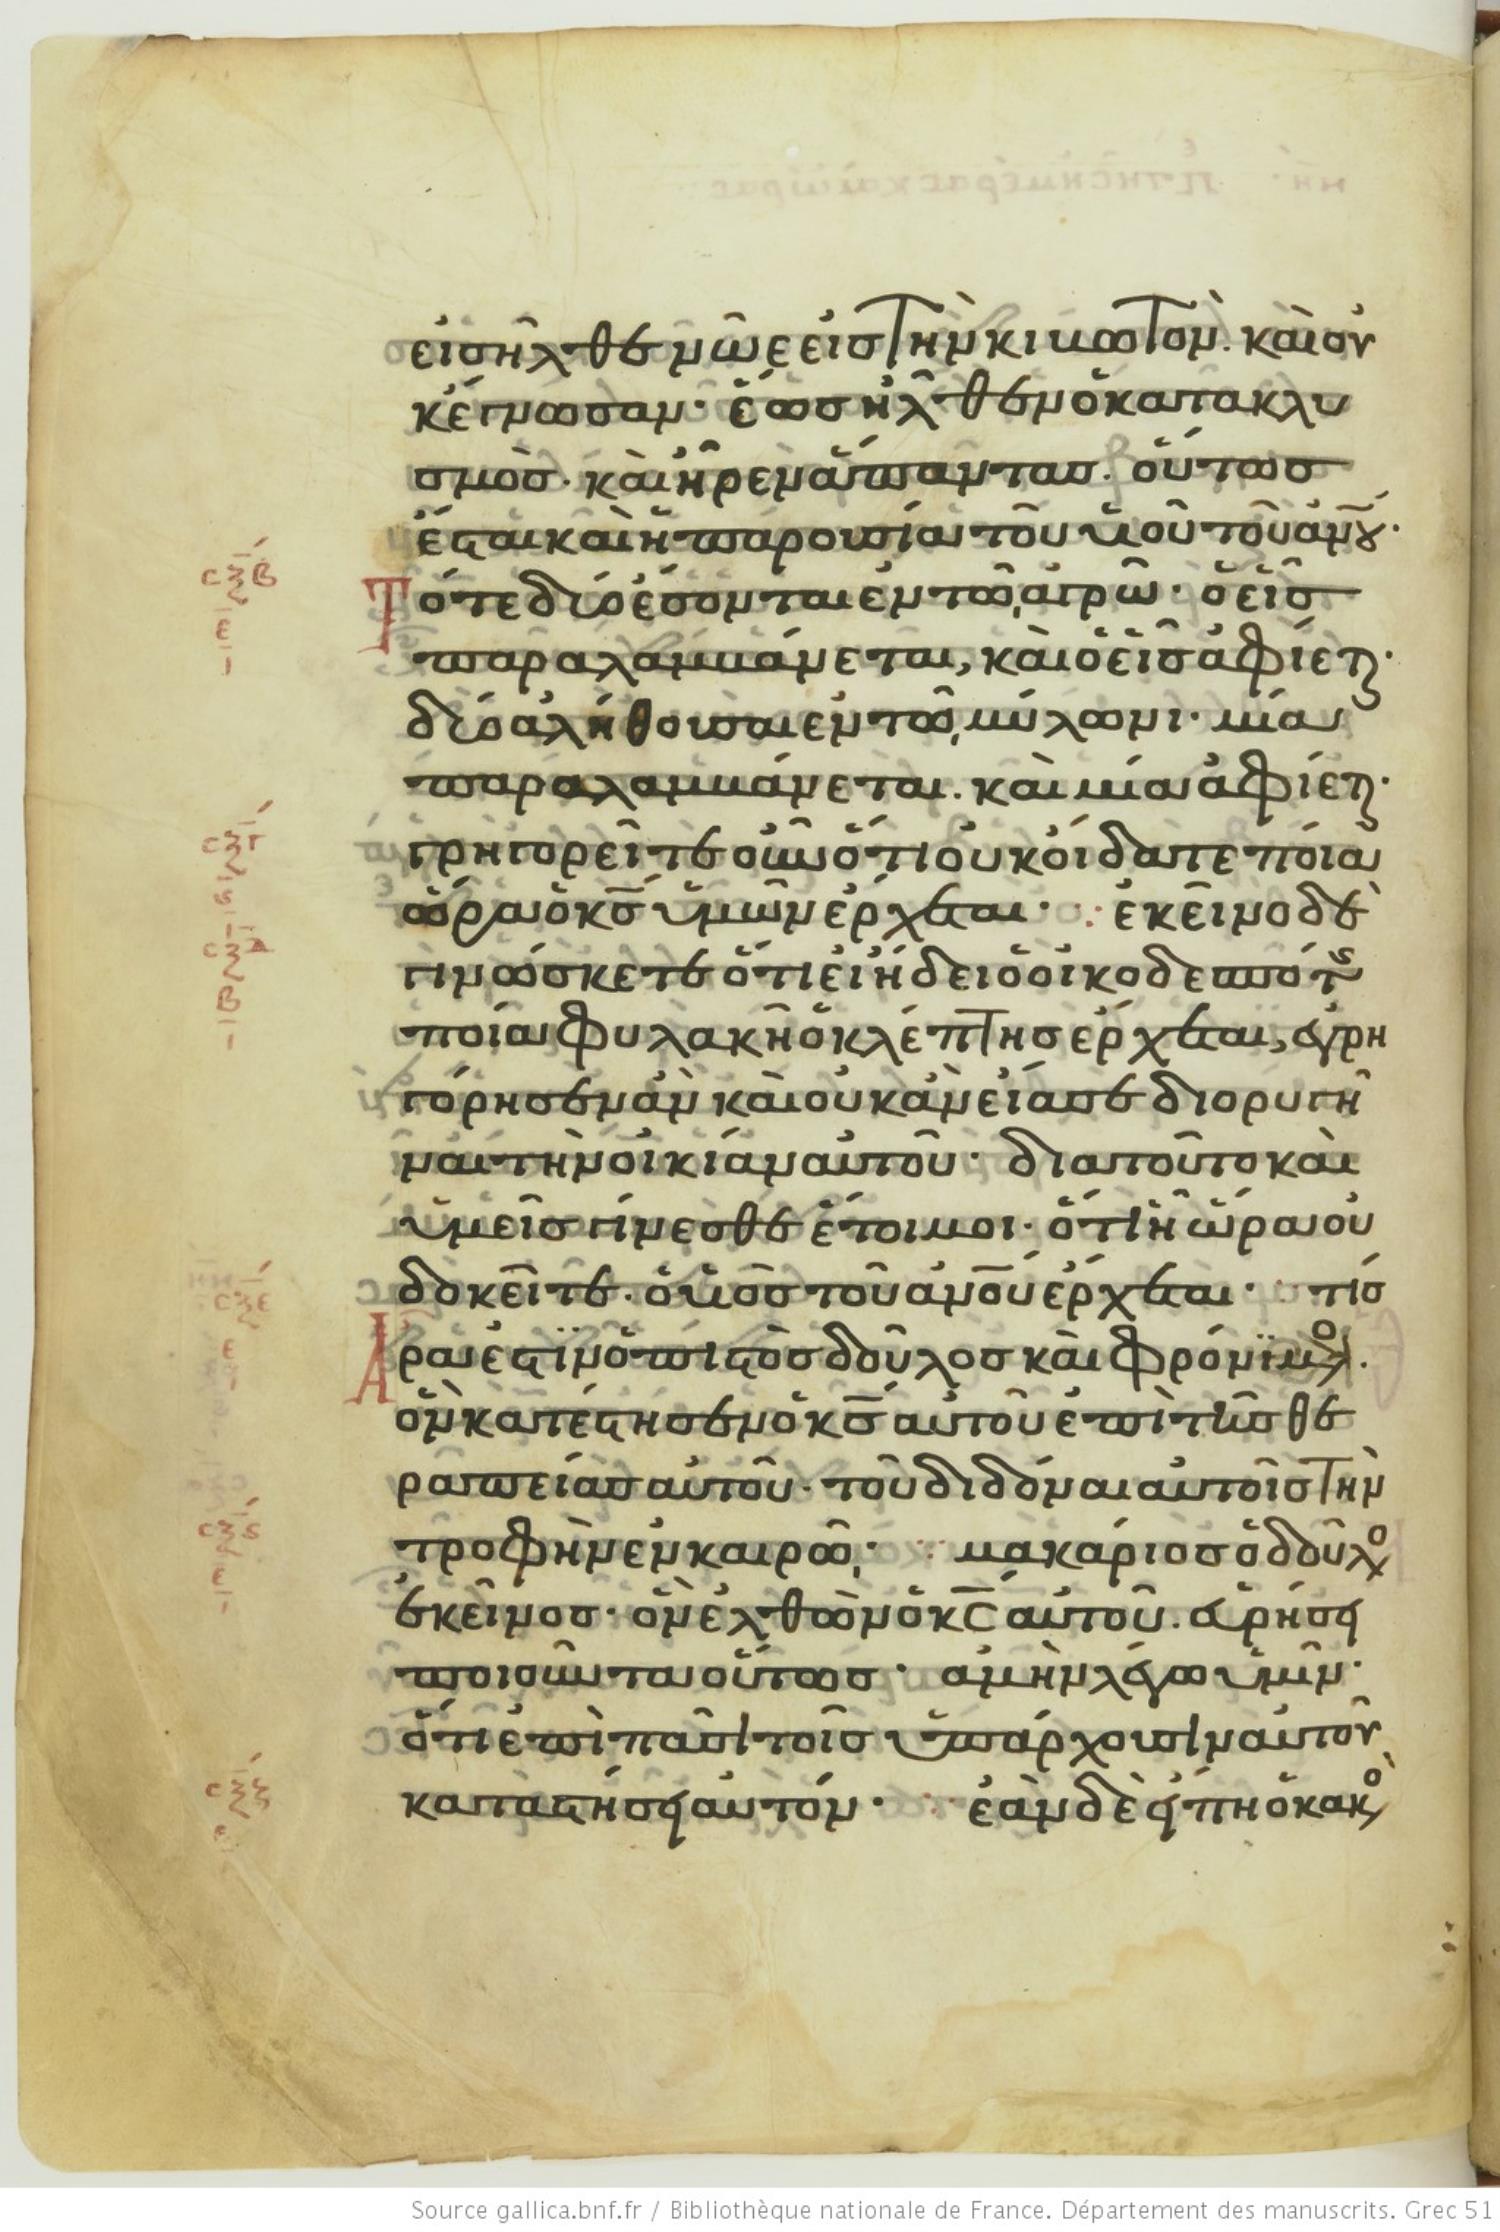 εἰσῆλθε νῶε εἰς τὴν κιβωτόν. καὶ οὐ
κ ἔγνωσαν· ἕως ἦλθεν ὁ κατακλυ
σμὸς. καὶ ἦρεν ἅπαντας. οὕτως
ἔσται καὶ ἡ παρουσία τοῦ υἱοῦ τοῦ ἀν̅ου·
σξβ
ε
Τότε δύο ἔσονται ἐν τῶ ἀγρῶ· ὁ εἷς
παραλαμβάνεται, καὶ ὁ εἷς ἀφίεται·
δύο ἀλήθουσαι ἐν τῶ μύλωνι· μία
παραλαμβάνεται. καὶ μία ἀφίεται·
σξγ
γρηγορεῖτε οὖν ὅτι οὐκ οἴδατε ποία
ὥρα ὁ κ̅ς ὑμῶν ἔρχεται· ἐκεῖνο δὲ
σξδ
β
γινώσκετε ὅτι εἰ ἤδει ὁ οἰκοδεσπότης
ποία φυλακῆ ὁ κλέπτης ἔρχεται, ἐγρη
γόρησεν ἂν καὶ οὐκ ἂν εἴασε διορυγῆ
ναι τὴν οἰκίαν αὐτοῦ· διατοῦτο καὶ
ὑμεῖς γίνεσθε ἕτοιμοι· ὅτι ἧ ὥρα οὐ
δοκεῖτε. ὁ υἱὸς τοῦ ἀν̅ου ἔρχεται· τίς
σξε
ε
Ἄρα ἐστϊν ὁ πιστὸς δοῦλος καὶ φρόνϊμος.
ὃν κατέστησεν ὁ κ̅ς αὐτοῦ ἐπὶ τῆς θε
ραπείας αὐτοῦ· τοῦ διδόναι αὐτοῖς τὴν
τροφὴν ἐν καιρῶ· μακάριος ὁ δοῦλος
σξς
ε
ἐκεῖνος· ὃν ἐλθὼν ὁ κ̅ς αὐτοῦ. εὑρήσει
ποιοῦντα οὕτως· ἀμὴν λέγω ὑμῖν·
ὅτι ἐπὶ πᾶσι τοῖς ὑπάρχουσιν αὐτοῦ
καταστήσει αὐτόν· ἐὰν δὲ εἴπη ὁ κακὸς
σξζ
ε
Source gallica.bnf.fr / Bibliothèque nationale de France. Département des manuscrits. Grec 51